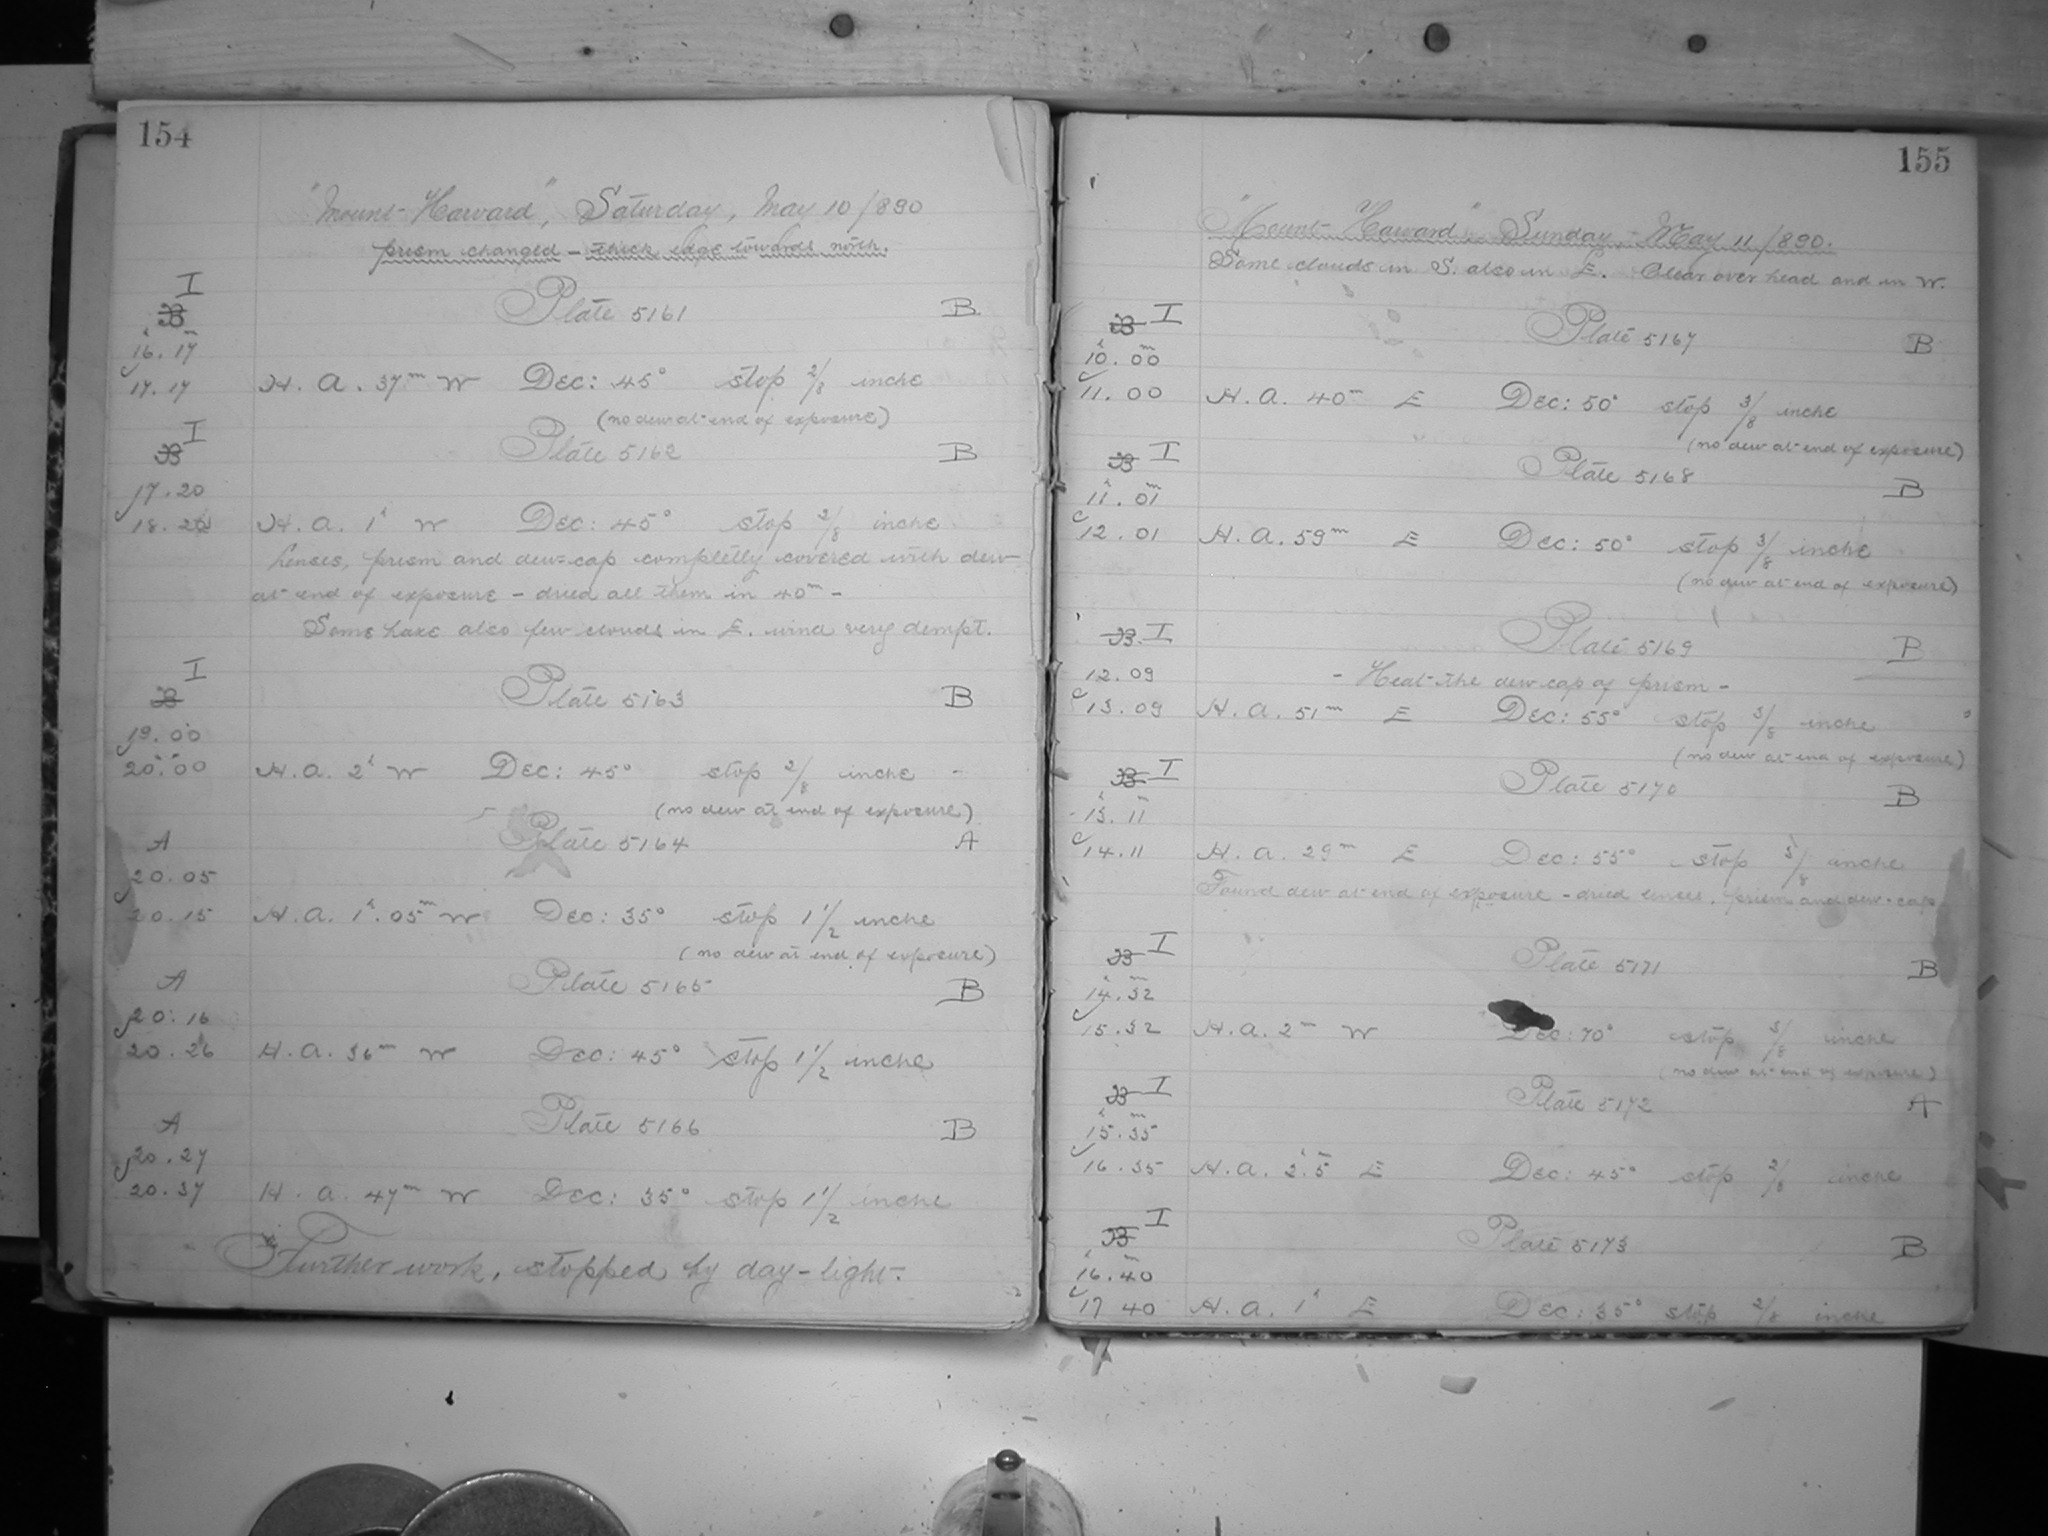 154
"Mount Harvard", Saturday, May 10/890
prism changed - thick edge towards north.
I
B Plate 5161 B
16h.17m
17.17 H. A. 37m W Dec: 45° stop 2/8 inche
(no dew at end of exposure)
I
B Plate 5162 B
17.20
18.20 H. A. 1h W Dec: 45° stop 2/8 inche
Lenses, prism and dew-cap completly covered with dew
at end of exposure - dried all them in 40m -
Some haxe also few clouds in E. wind very dempt.
I
B Plate 5163 B
19.00
20.00 H. A. 2h W Dec: 45° stop 2/8 inche -
(no dew at end of exposure)
A Plate 5164 A
20.05
20.15 H. A. 1h.05m W Dec: 35° stop 1 1/2 inche
(no dew at end of exposure)
A Plate 5165 B
20.16
20.26 H. A. 36m W Dec: 45° stop 1 1/2 inche
A Plate 5166 B
20.27
20.37 H. A. 47m W Dec: 35° stop 1 1/2 inche
Further work, stopped by day-light.
155
"Mount Harvard" Sunday, May 11/890.
Some clouds in S. also in E. Clear over head and in W.
B I Plate 5167 B
10h.00m
11.00 H. A. 40m E Dec: 50° stop 3/8 inche
(no dew at end of exposure)
B I Plate 5168 B
11h.01m
12.01 H. A. 59m E Dec: 50° stop 3/8 inche
(no dew at end of exposure)
B I Plate 5169 B
12.09 - Heat the dew cap of prism -
13.09 H. A. 51m E Dec: 55° stop 3/8 inche
(no dew at end of exposure)
B I Plate 5170 B
13h.11m
14.11 H. A. 29m E Dec: 55° stop 3/8 inche
Found dew at end of exposure - dried lenses, prism and dew-cap
B I Plate 5171 B
14h.32m
15.32 H. A. 2m W Dec: 70° stop 3/8 inche
(no dew at end of exposure)
B I Plate 5172 A
15h.35m
16.35 H. A. 2h.5m E Dec: 45° stop 2/8 inche
B I Plate 5173 B
16h.40m
17 40 H. A. 1h E Dec: 35° stop 2/8 inche